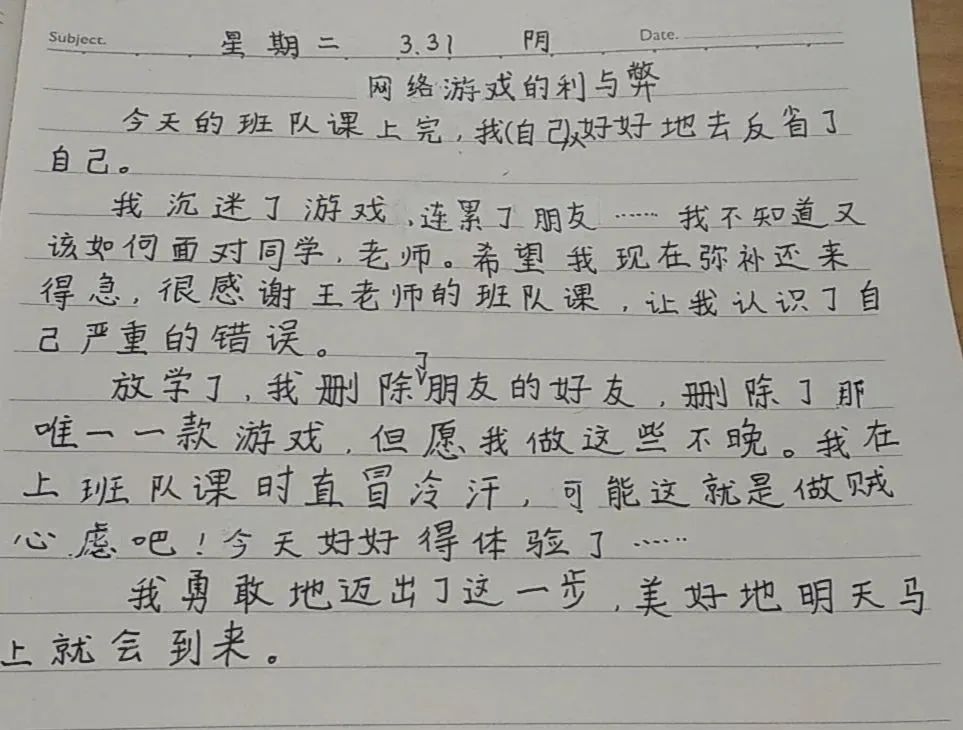 Subject. 星期二 3.31 阴 Date.
网络游戏的利与弊
今天的班队课上完，我(自己)又好好地去反省了
自己。
我沉迷了游戏，连累了朋友……我不知道又
该如何面对同学，老师。希望我现在弥补还来
得急，很感谢王老师的班队课，让我认识了自
己严重的错误。
放学了，我删除了朋友的好友，删除了那
唯一一款游戏，但愿我做这些不晚。我在
上班队课时直冒冷汗，可能这就是做贼
心虑吧！今天好好得体验了……
我勇敢地迈出了这一步，美好地明天马
上就会到来。